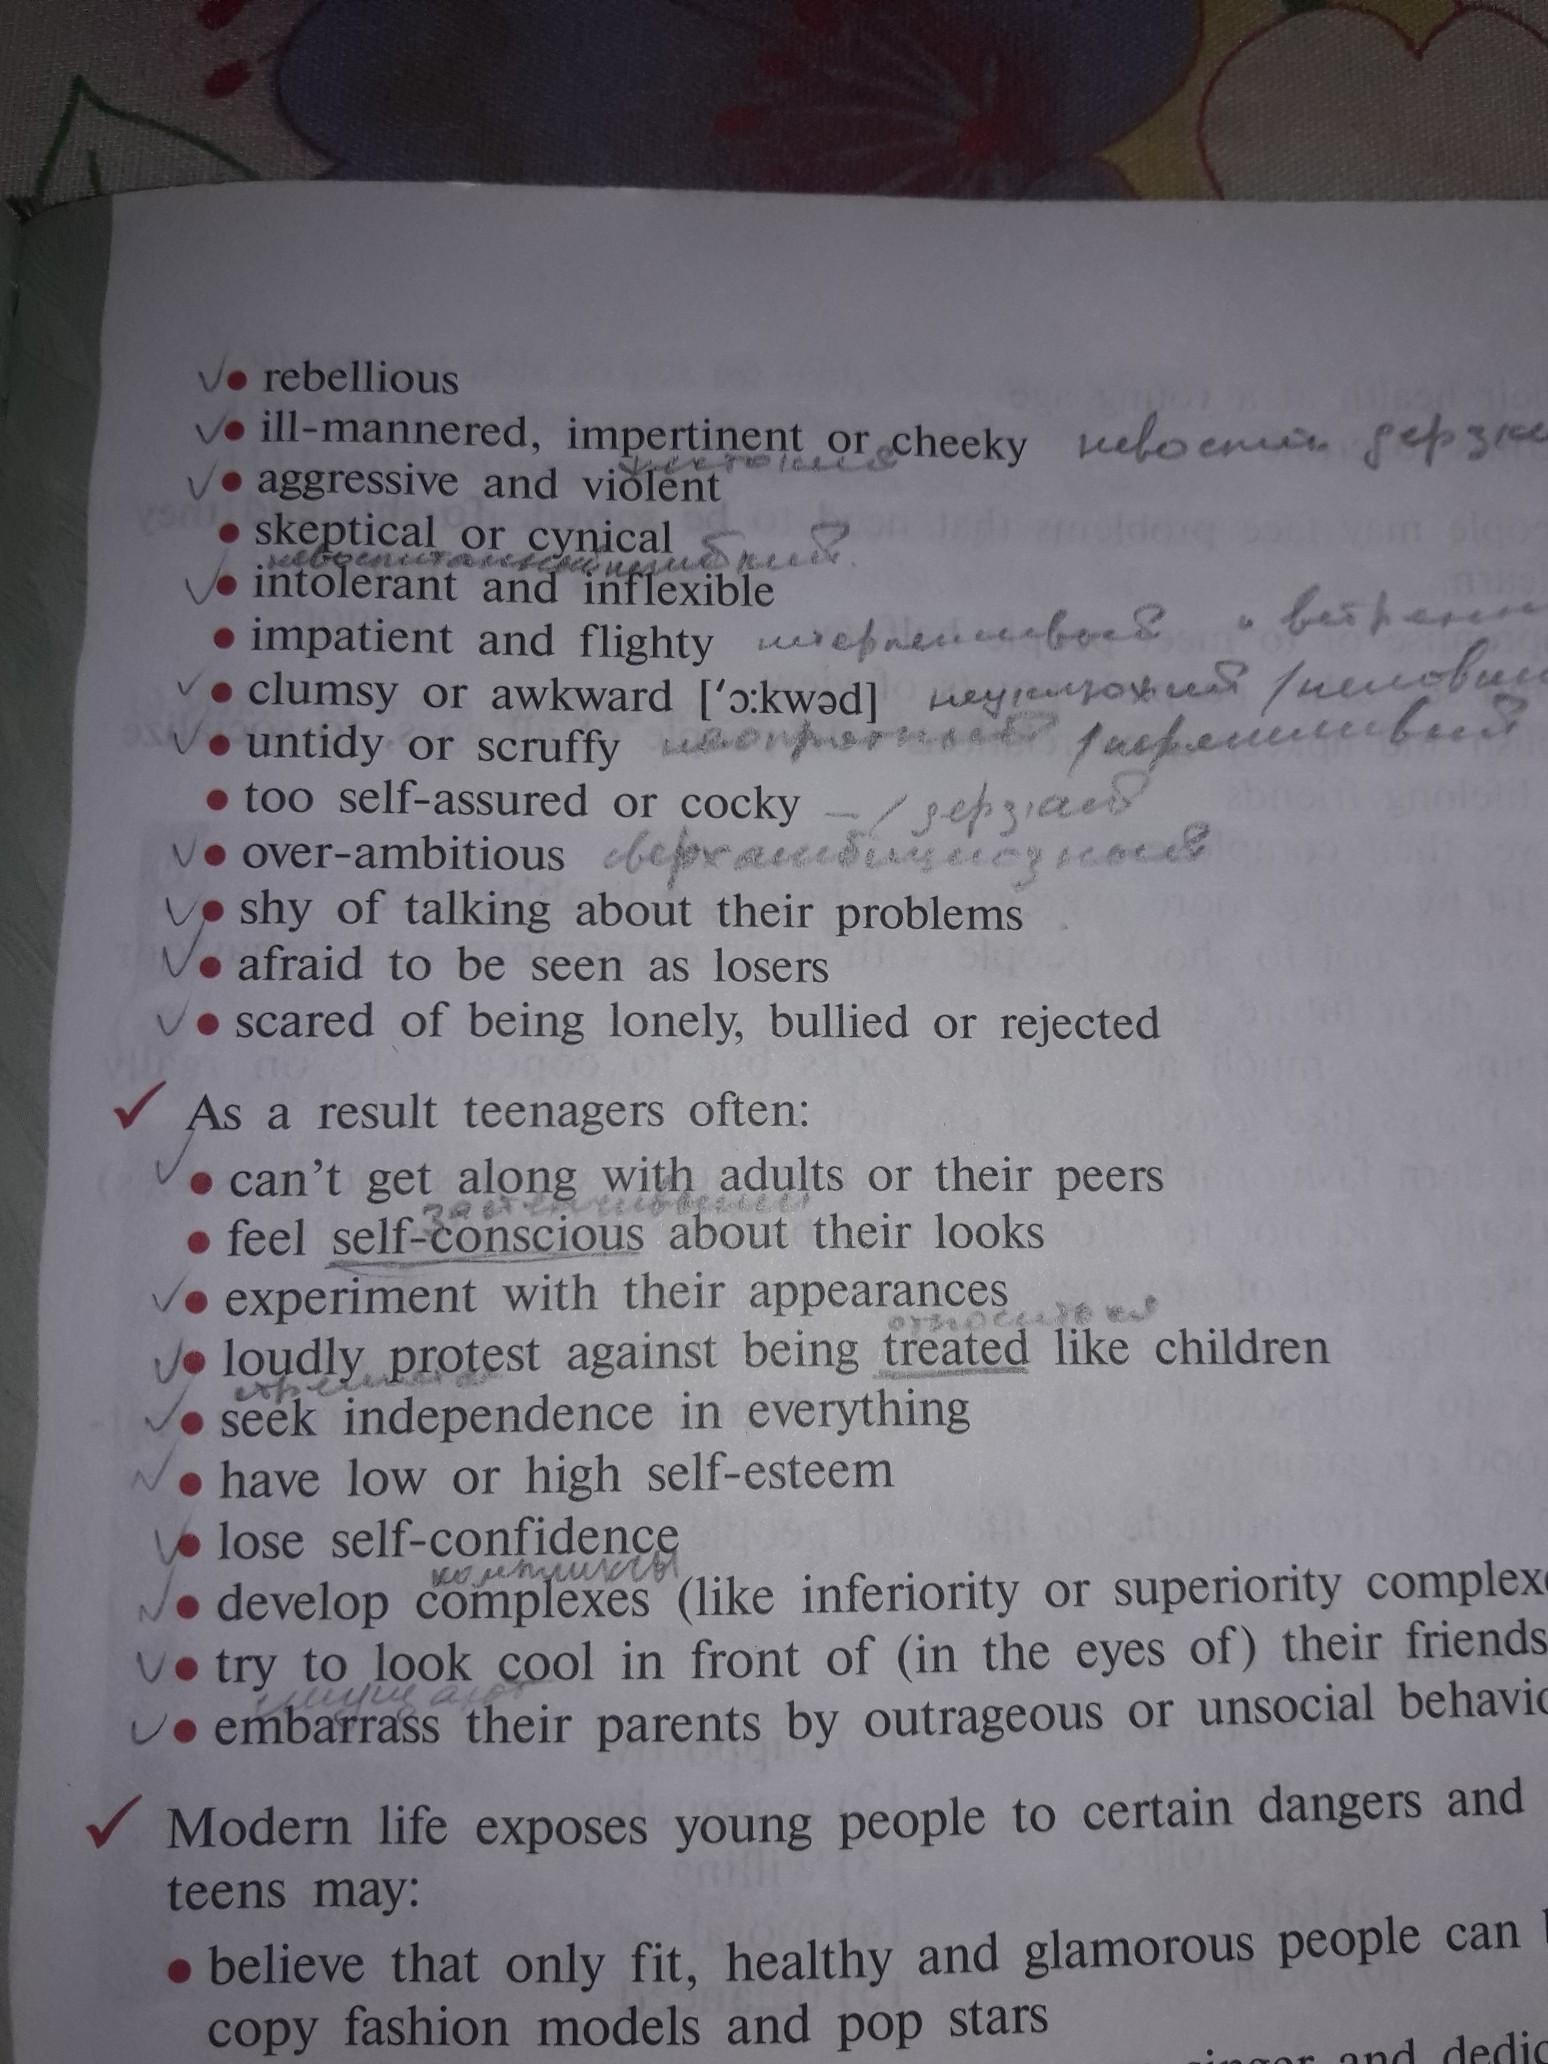 rebellious
ill-mannered, impertinent or cheeky
aggressive and violent
skeptical or cynical
intolerant and inflexible
impatient and flighty
clumsy or awkward ['ɔ:kwəd]
untidy or scruffy неопрятный /неряшливый
too self-assured or cocky — / дерзкий
over-ambitious сверхамбициозный
shy of talking about their problems
afraid to be seen as losers
scared of being lonely, bullied or rejected
✓ As a result teenagers often:
can't get along with adults or their peers
feel self-conscious about their looks
experiment with their appearances
loudly protest against being treated like children
seek independence in everything
have low or high self-esteem
lose self-confidence
комплексы
develop complexes (like inferiority or superiority
try to look cool in front of (in the eyes of) their friends
смущают
embarrass their parents by outrageous or unsocial
✓ Modern life exposes young people to certain dangers and
teens may:
believe that only fit, healthy and glamorous people can
copy fashion models and pop stars
and